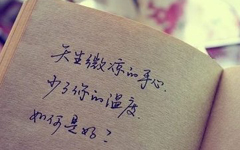 天生微凉的手心.
少了你的温度
如何是好?